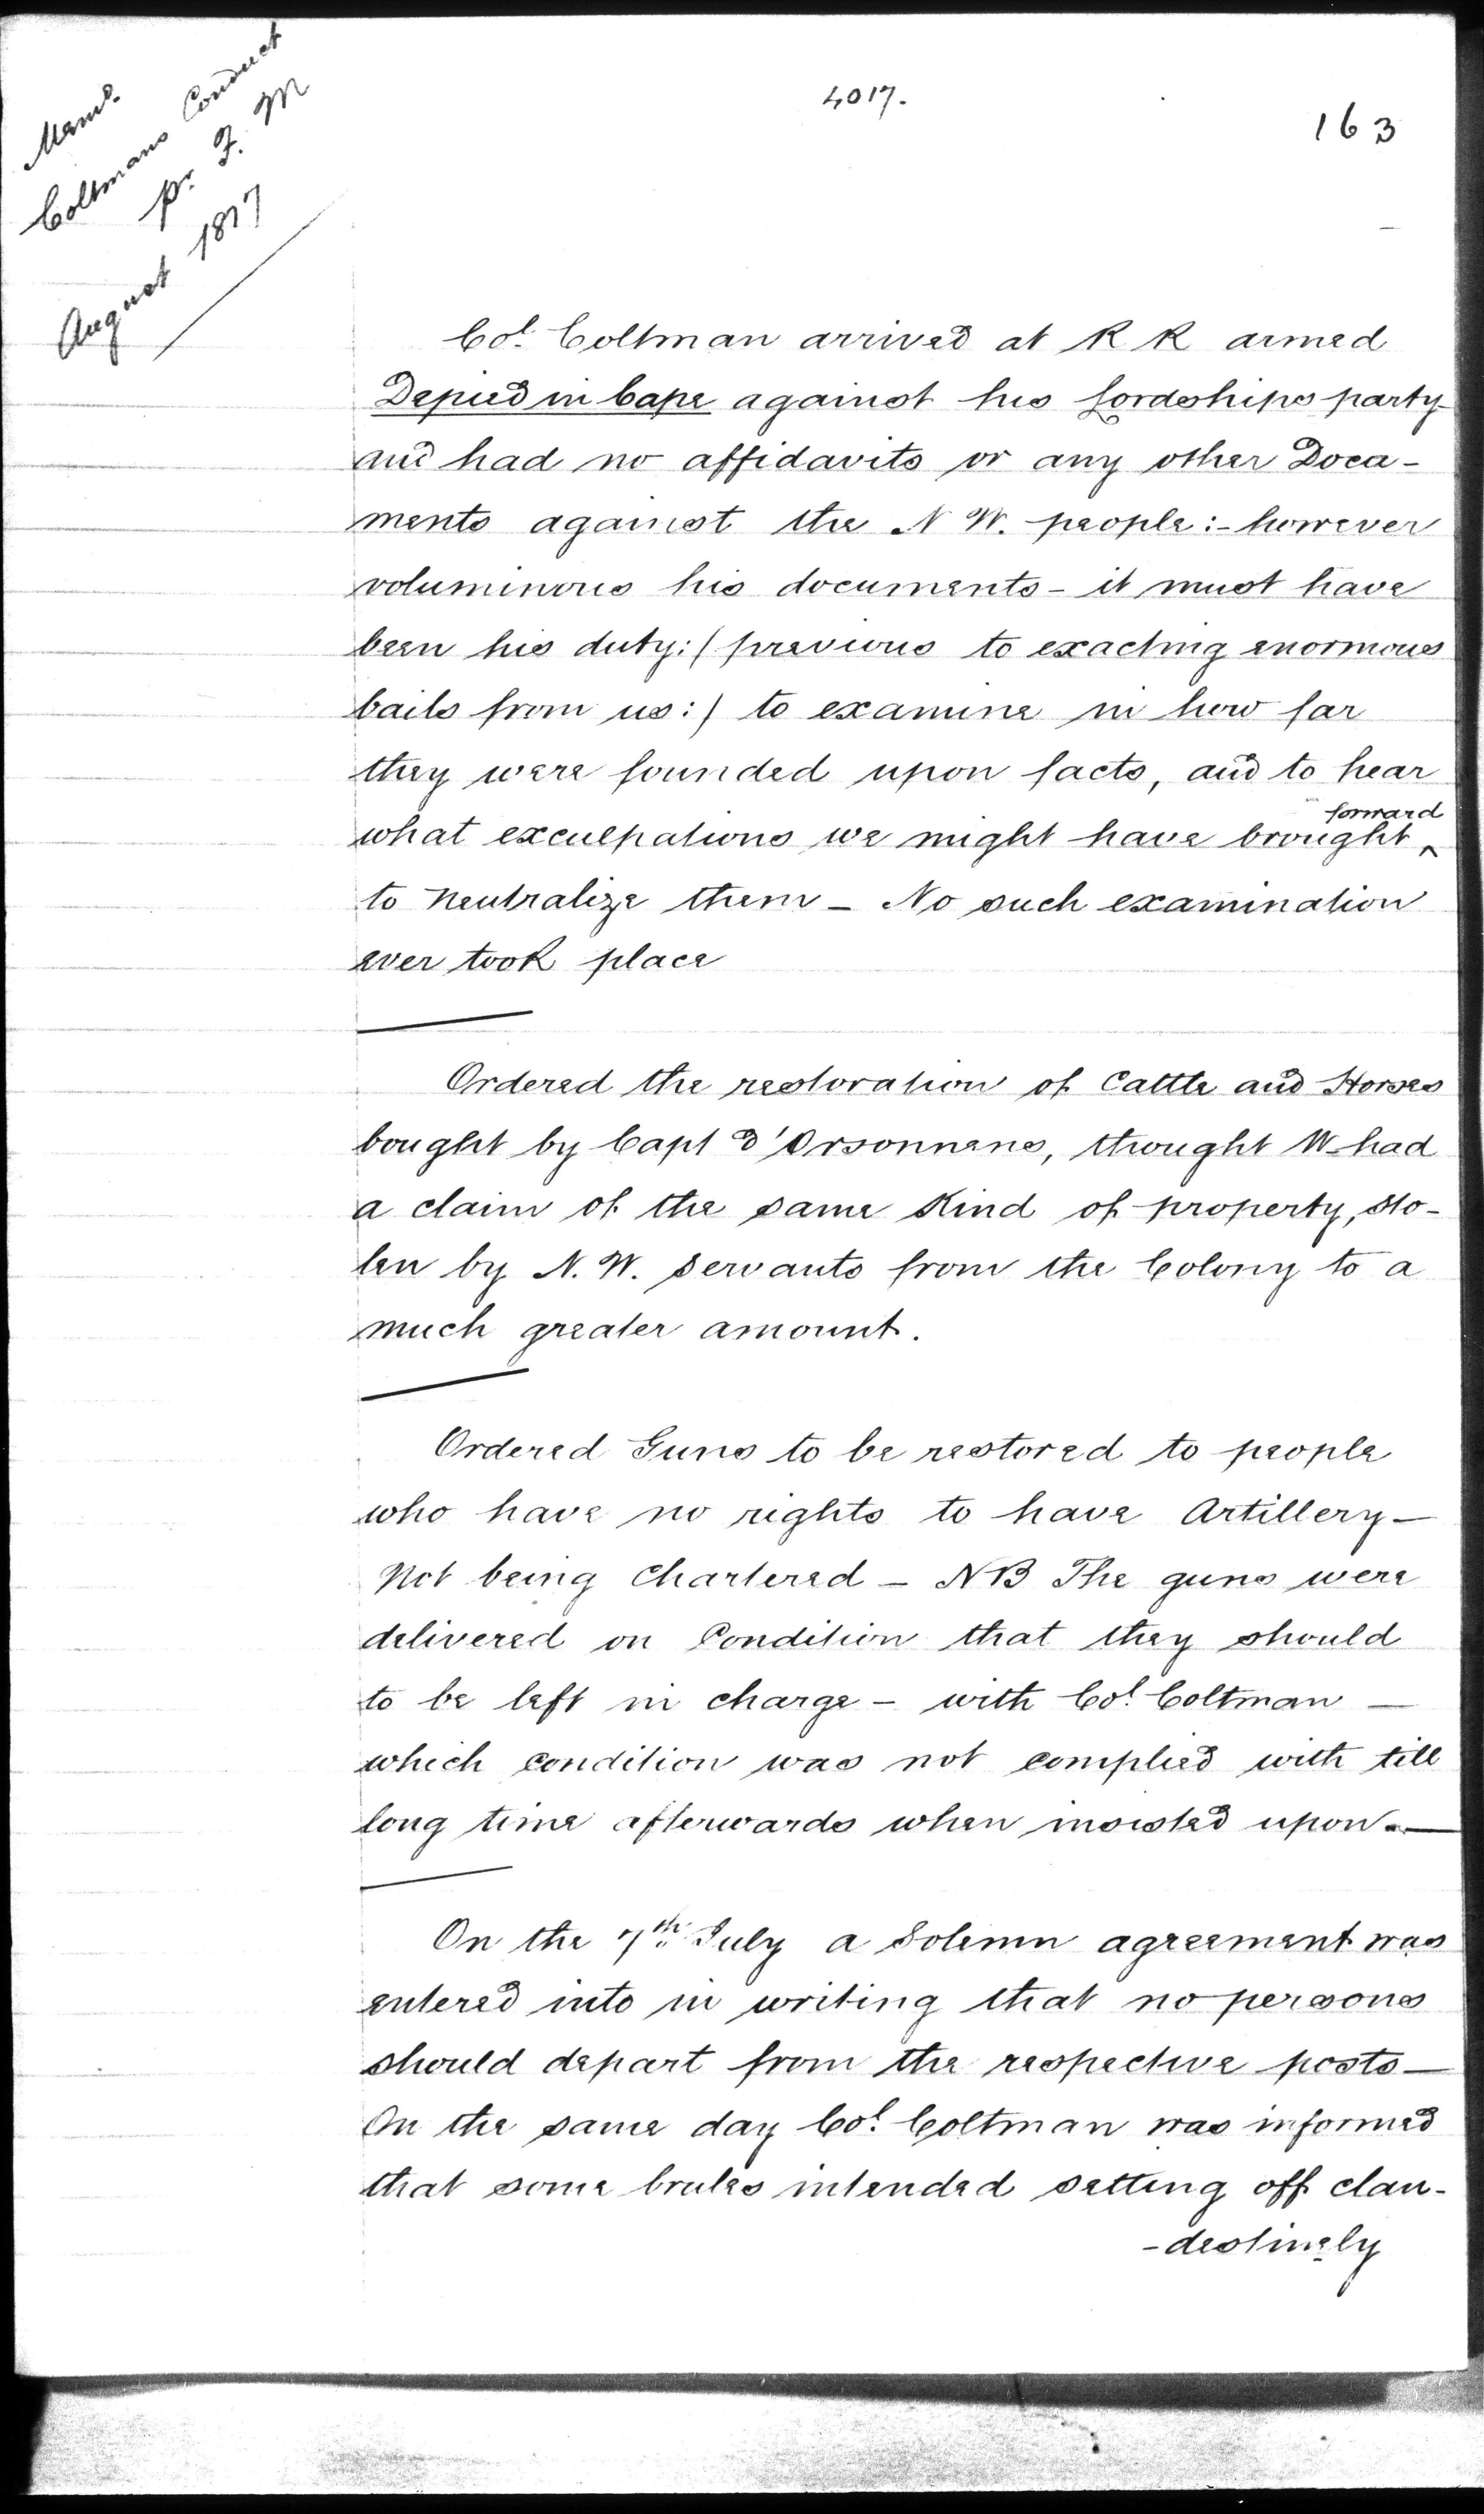 4017.
163
Memo.
Coltmans Conduct
pr. F. M
August 1817
Col. Coltman arrived at R R armed
Depied in Cape against his Lordships party
and had no affidavits or any other Docu-
ments against the N W. people:- however
voluminous his documents - it must have
been his duty:( previous to exacting enormous
bails from us:) to examine in how far
they were founded upon facts, and to hear
what exculpations we might have brought forward
to neutralize them - No such examination
ever took place
Ordered the restoration of Cattle and Horses
bought by Capt d'Orsonnens, thought W had
a claim of the same Kind of property, sto-
len by N. W. servants from the Colony to a
much greater amount.
Ordered Guns to be restored to people
who have no rights to have Artillery -
Not being Chartered - NB The guns were
delivered on Condition that they should
to be left in charge - with Col. Coltman -
which condition was not complied with till
long time afterwards when insisted upon. -
On the 7th July a Solemn agreement was
entered into in writing that no persons
should depart from the respective posts -
On the same day Col. Coltman was informed
that some brules intended setting off clan-
-destinely